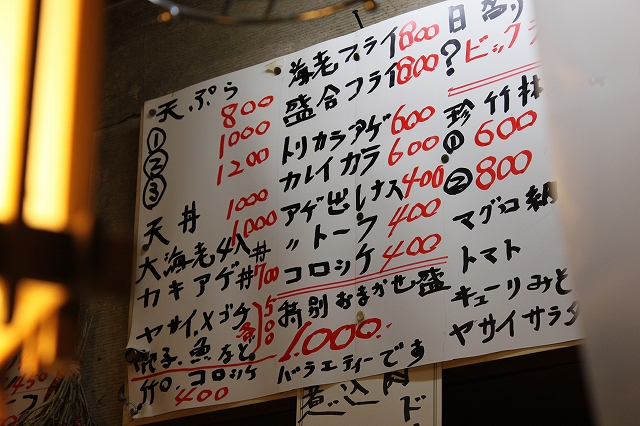 天ぷら
① 800
② 1000
③ 1200
天丼 1000
大海老4入丼 1000
カキアゲ丼 700
ヤサイ、メゴチ
魚など
500
コロッケ
400
海老フライ 800
盛合フライ 800
トリカラアゲ 600
カレイカラ 600
アゲ出しナス 400
〃トーフ 400
コロッケ 400
特別おまかせ盛
1.000
バラエティーです
日
？ビック
珍竹林
① 600
② 800
マグロ納
トマト
キューリみそ
ヤサイサラダ
煮込